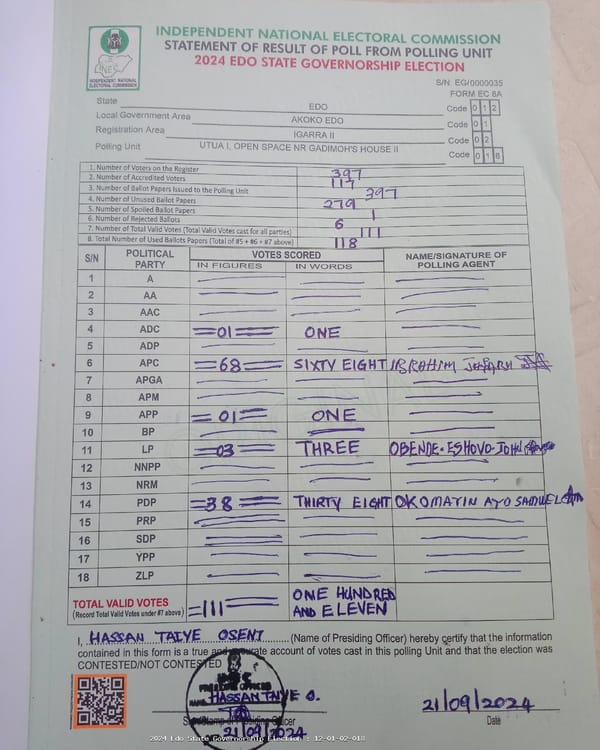 INDEPENDENT NATIONAL ELECTORAL COMMISSION
STATEMENT OF RESULT OF POLL FROM POLLING UNIT
2024 EDO STATE GOVERNORSHIP ELECTION
INEC
INDEPENDENT NATIONAL
ELECTORAL COMMISSION
S/N: EG/0000035
FORM EC 8A
State EDO Code 0 1 2
Local Government Area AKOKO EDO Code 0 1
Registration Area IGARRA II Code 0 2
Polling Unit UTUA I, OPEN SPACE NR GADIMOH'S HOUSE II Code 0 1 8
1. Number of Voters on the Register 397
2. Number of Accredited Voters 117
3. Number of Ballot Papers Issued to the Polling Unit 397
4. Number of Unused Ballot Papers 279
5. Number of Spoiled Ballot Papers 1
6. Number of Rejected Ballots 6
7. Number of Total Valid Votes (Total Valid Votes cast for all parties) 111
8. Total Number of Used Ballots Papers (Total of #5 + #6 + #7 above) 118
S/N POLITICAL PARTY VOTES SCORED NAME/SIGNATURE OF POLLING AGENT
IN FIGURES IN WORDS
1 A
2 AA
3 AAC
4 ADC =01= ONE
5 ADP
6 APC =68= SIXTY EIGHT IBRAHIM
7 APGA
8 APM
9 APP =01= ONE
10 BP
11 LP =03= THREE OBENDE-ESHOVO-JOHN
12 NNPP
13 NRM
14 PDP =38= THIRTY EIGHT OKOMAYIN AYO SAMUEL
15 PRP
16 SDP
17 YPP
18 ZLP
TOTAL VALID VOTES =111= ONE HUNDRED
(Record Total Valid Votes under #7 above) AND ELEVEN
I, HASSAN TAIYE OSENI (Name of Presiding Officer) hereby certify that the information
contained in this form is a true and accurate account of votes cast in this polling Unit and that the election was
CONTESTED/NOT CONTESTED
INEC
PRESIDING OFFICER
NAME: HASSAN TAIYE O.
21/09/2024
Presiding Officer
21/09/2024
Date
2024 Edo State Governorship Election : 12-01-02-018